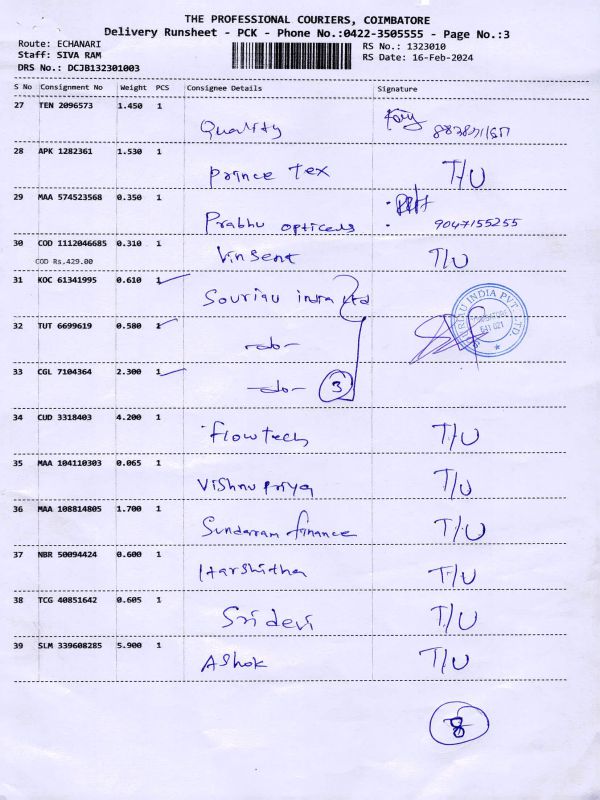 THE PROFESSIONAL COURIERS, COIMBATORE
Delivery Runsheet - PCK - Phone No.:0422-3505555 - Page No.:3
Route: ECHANARI
RS No.: 1323010
Staff: SIVA RAM
RS Date: 16-Feb-2024
DRS No.: DCJB132301003
S No Consignment No Weight PCS Consignee Details Signature
27 TEN 2096573 1.450 1
Quality
28 APK 1282361 1.530 1
prince tex T/U
29 MAA 574523568 0.350 1
Prabhu opticals 9047155255
30 COD 1112046685 0.310 1
COD Rs.429.00 Vinsent T/U
31 KOC 61341995 0.610 1
Souriau india Ltd
32 TUT 6699619 0.580 1
-do-
33 CGL 7104364 2.300 1
-do- 3
34 CUD 3318403 4.200 1
flowtech T/U
35 MAA 104110303 0.065 1
Vishnu priya T/U
36 MAA 108814805 1.700 1
Sundaram finance T/U
37 NBR 50094424 0.600 1
Harshitha T/U
38 TCG 40851642 0.605 1
Sri devi T/U
39 SLM 339608285 5.900 1
Ashok T/U
8